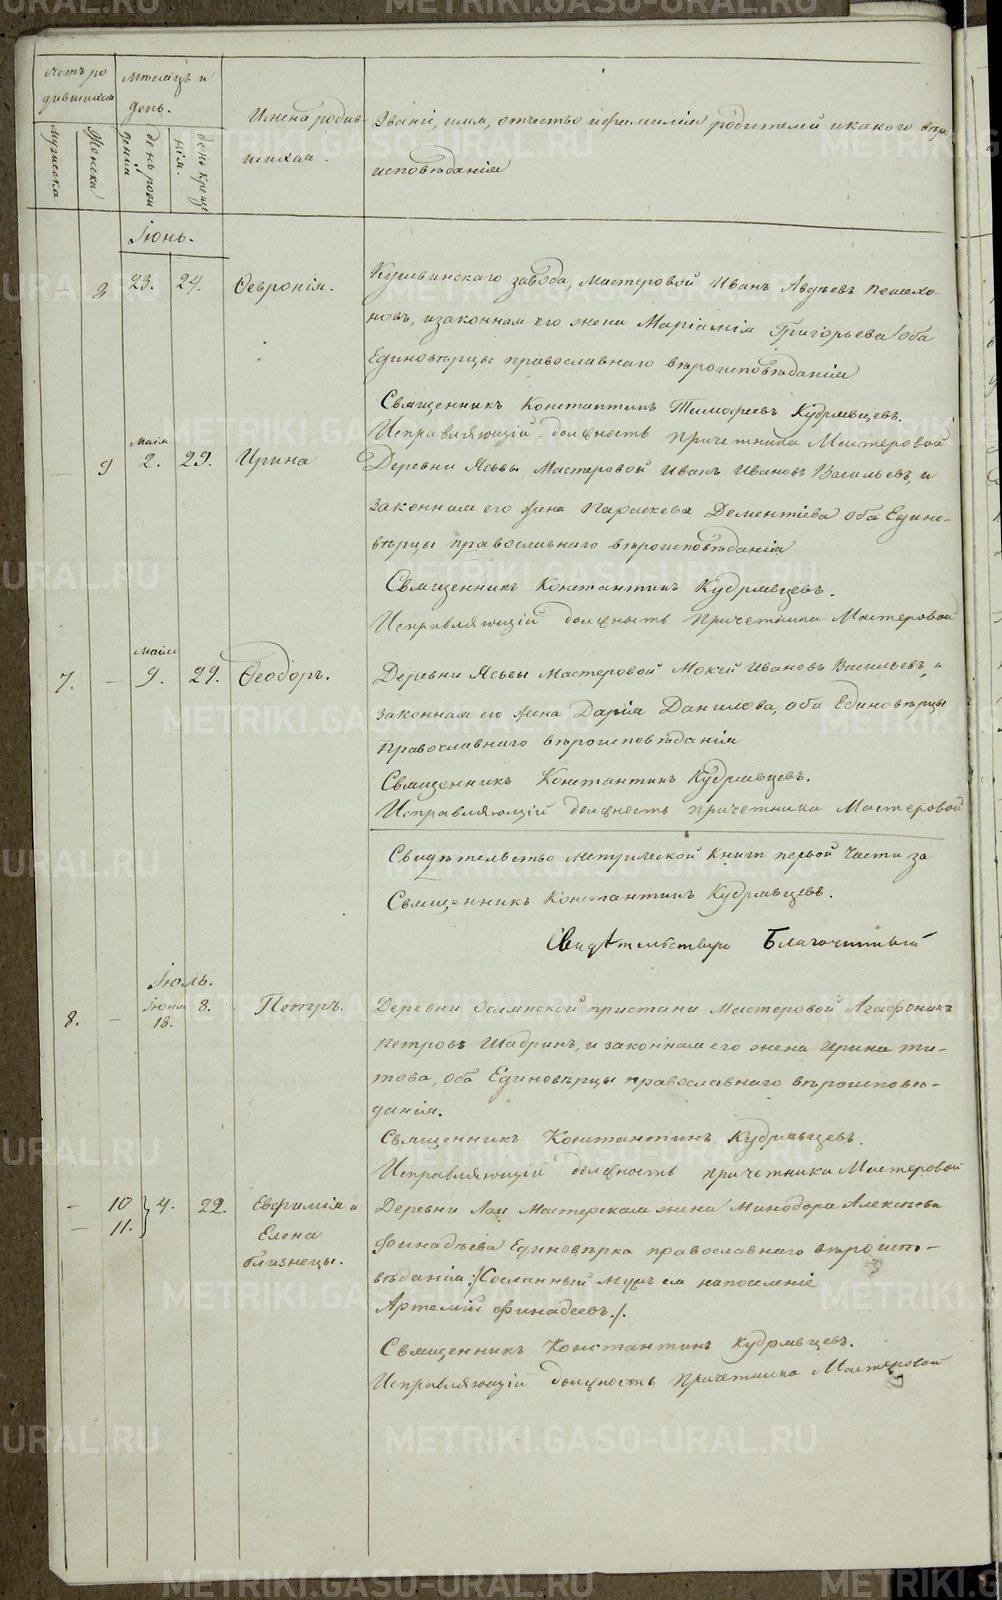 Счетъ ро
дившихся
Мѣсяцъ и
день.
мужеска
Женска
день рож
денія
день креще
нія.
Имена родив-
шихся.
Званіе, имя, отчество и фамилія родителей и какого вѣро
исповѣданія
Іюнь.
– 8 23. 24. Февронія. Кушвинскаго завода, Мастеровой Иванъ Авдѣевъ Пешехо-
новъ, и законная его жена Маріамія Григорьева оба
Единовѣрцы православнаго вѣроисповѣданія
Священникъ Константинъ Тимофеевъ Кудрявцевъ.
Исправляющій должность причетника Мастеровой
Маія
– 9 2. 29. Ирина Деревни Ясьвы Мастеровой Иванъ Ивановъ Васильевъ, и
законная его жена Параскева Дементіева оба Едино-
вѣрцы православнаго вѣроисповѣданія
Священникъ Константинъ Кудрявцевъ.
Исправляющій должность Причетника Мастеровой
Маія
7. – 9. 29. Феодоръ. Деревни Ясьвы Мастеровой Мокій Ивановъ Васильевъ, и
законная его жена Дарія Данилова, оба Единовѣрцы
Православнаго вѣроисповѣданія
Священникъ Константинъ Кудрявцевъ.
Исправляющій должность причетника Мастеровой
Свидѣтельство метрической книги первой части за
Священникъ Константинъ Кудрявцевъ.
Свидѣтельствую Благочинный
Іюль.
Іюня
8. – 18. 8. Петръ. Деревни Ослянской пристани Мастеровой Агафоникъ
Петровъ Шадринъ, и законная его жена Ирина Ти-
това, оба Единовѣрцы православнаго вѣроисповѣ-
данія.
Священникъ Константинъ Кудрявцевъ.
Исправляющій должность причетника Мастеровой
– 10 4. 22. Евфимія и Деревни Лаи Мастерская жена Минодора Алексѣева
– 11. Елена Финадѣева Единовѣрка православнаго вѣроиспо-
близнецы. вѣданія /: Сосланный мужъ ея на поселеніе
Артемій Финадеевъ :/.
Священникъ Константинъ Кудрявцевъ.
Исправляющій должность Причетника Мастеровой
METRIKI.GASO-URAL.RU